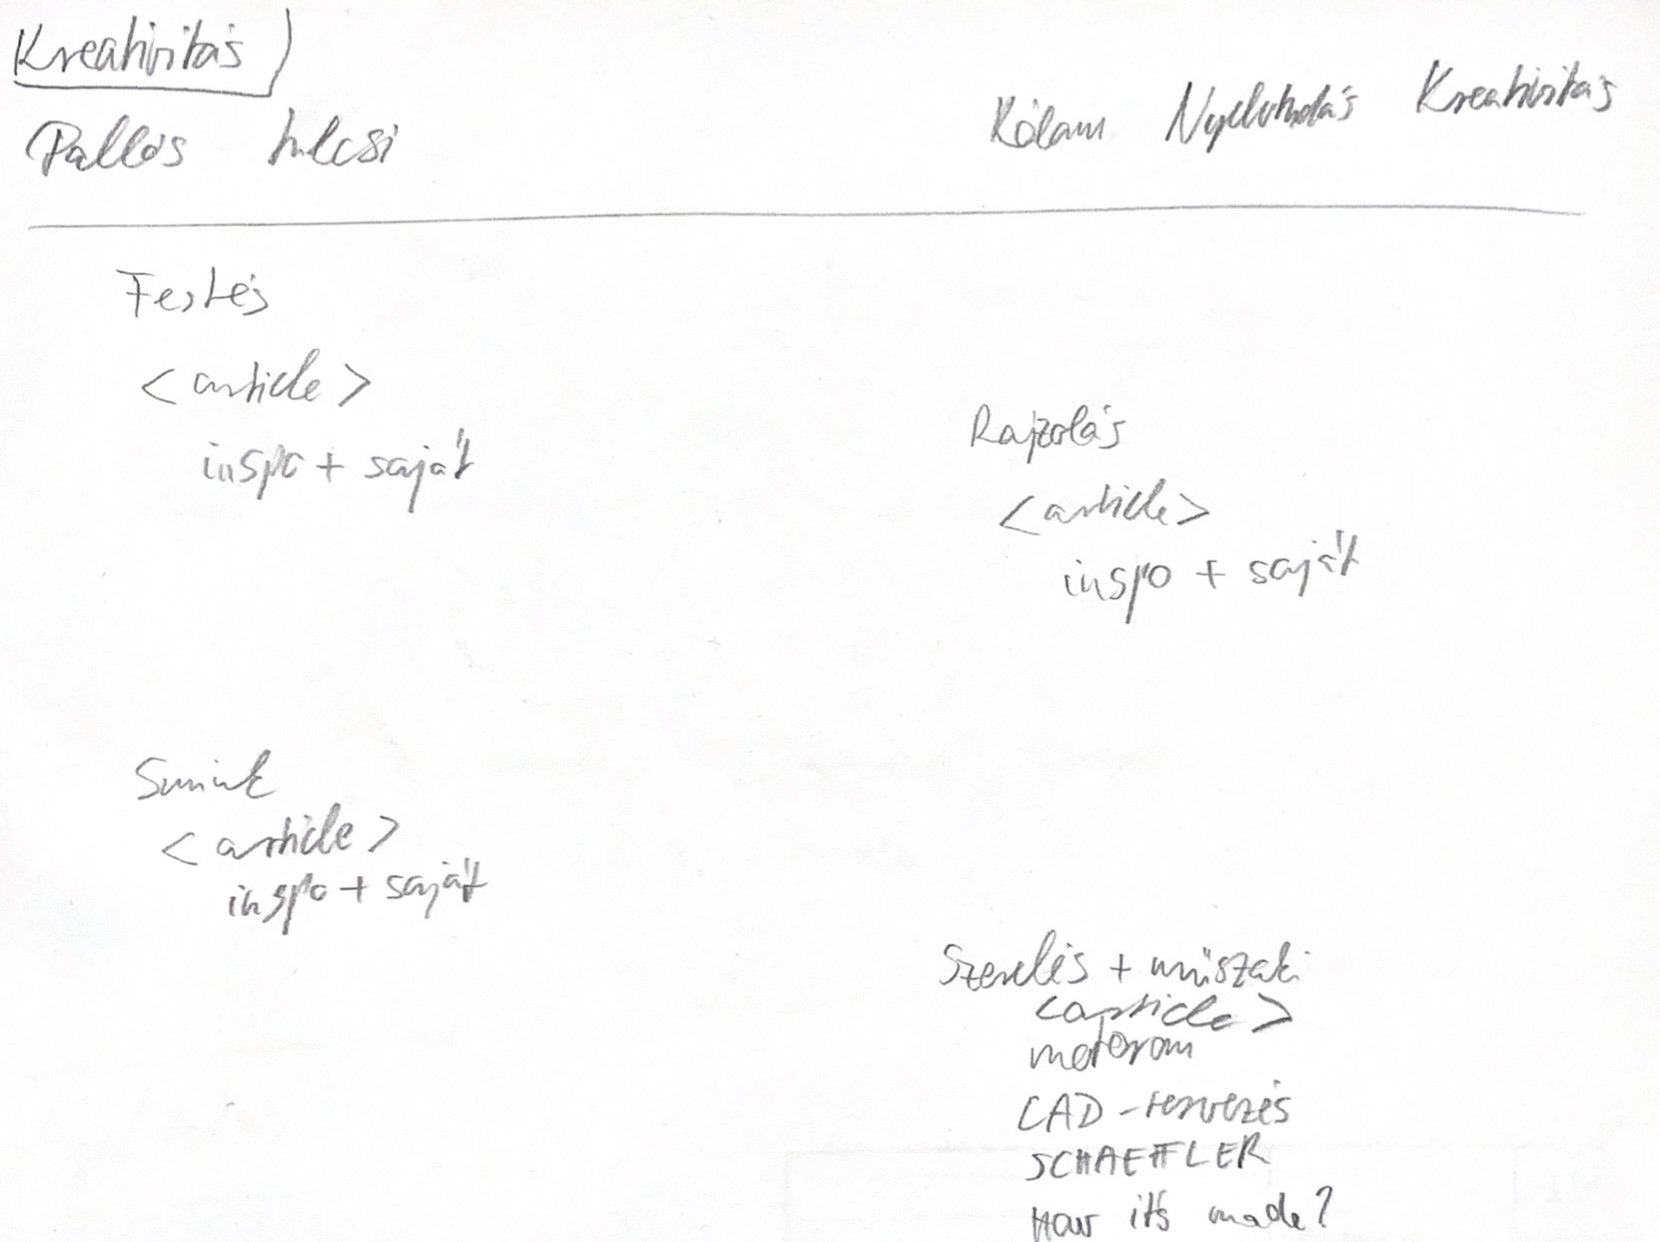 Kreativitás
Pallós Julcsi
Rólam Nyelvtudás Kreativitás
Festés
<article>
inspo + saját
Rajzolás
<article>
inspo + saját
Smink
<article>
inspo + saját
Szerelés + műszaki
<article>
motorom
CAD-tervezés
SCHAEFFLER
How it's made?